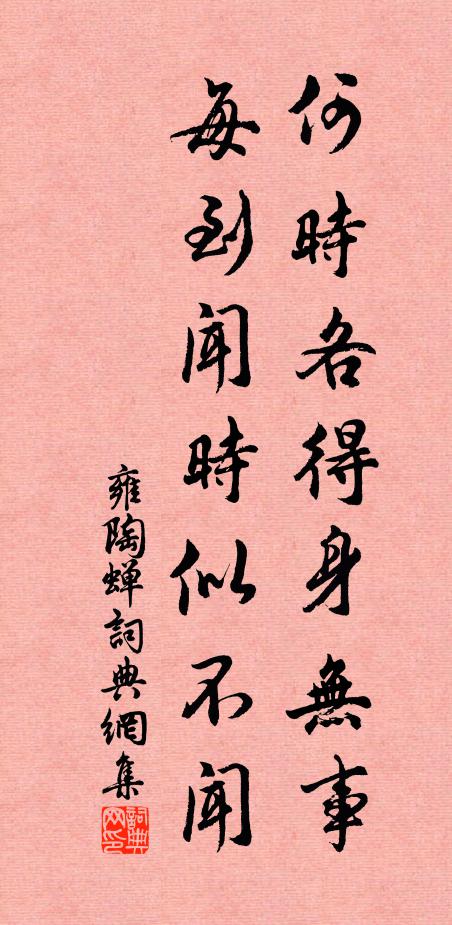 何時各得身無事
每到聞時似不聞
雍陶蝉詞典網集
詞典网印